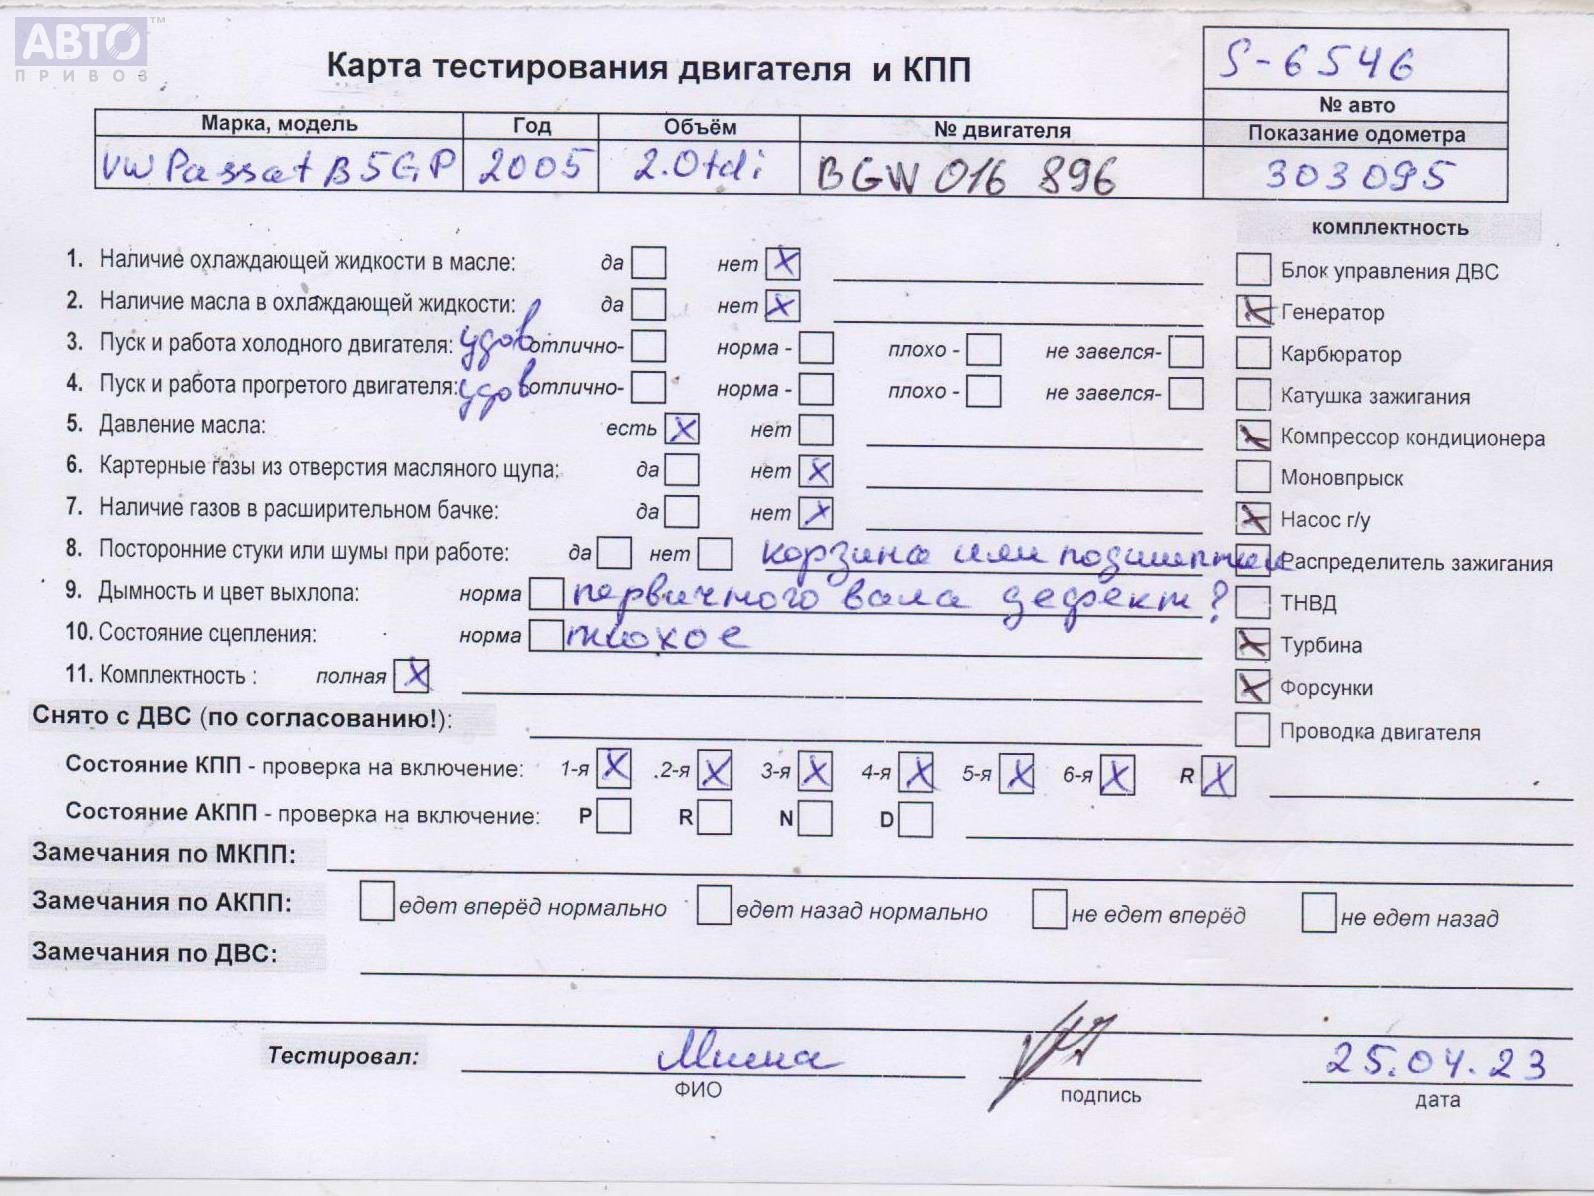 АВТО ™
ПРИВОЗ
Карта тестирования двигателя и КПП
S-6546
№ авто
Марка, модель Год Объём № двигателя Показание одометра
VW Passat B5GP 2005 2.0tdi BGW 016 896 303095
комплектность
1. Наличие охлаждающей жидкости в масле: да нет X
Блок управления ДВС
2. Наличие масла в охлаждающей жидкости: да нет X
X Генератор
3. Пуск и работа холодного двигателя: удов отлично- норма - плохо - не завелся-
Карбюратор
4. Пуск и работа прогретого двигателя: удов отлично- норма - плохо - не завелся-
Катушка зажигания
5. Давление масла: есть X нет
X Компрессор кондиционера
6. Картерные газы из отверстия масляного щупа: да нет X
Моновпрыск
7. Наличие газов в расширительном бачке: да нет X
X Насос г/у
8. Посторонние стуки или шумы при работе: да нет корзина или подшипник
Распределитель зажигания
9. Дымность и цвет выхлопа: норма первичного вала дефект?
ТНВД
10. Состояние сцепления: норма плохое
X Турбина
11. Комплектность : полная X
X Форсунки
Снято с ДВС (по согласованию!):
Проводка двигателя
Состояние КПП - проверка на включение: 1-я X 2-я X 3-я X 4-я X 5-я X 6-я X R X
Состояние АКПП - проверка на включение: P R N D
Замечания по МКПП:
Замечания по АКПП: едет вперёд нормально едет назад нормально не едет вперёд не едет назад
Замечания по ДВС:
Тестировал: 25.04.23
ФИО подпись дата